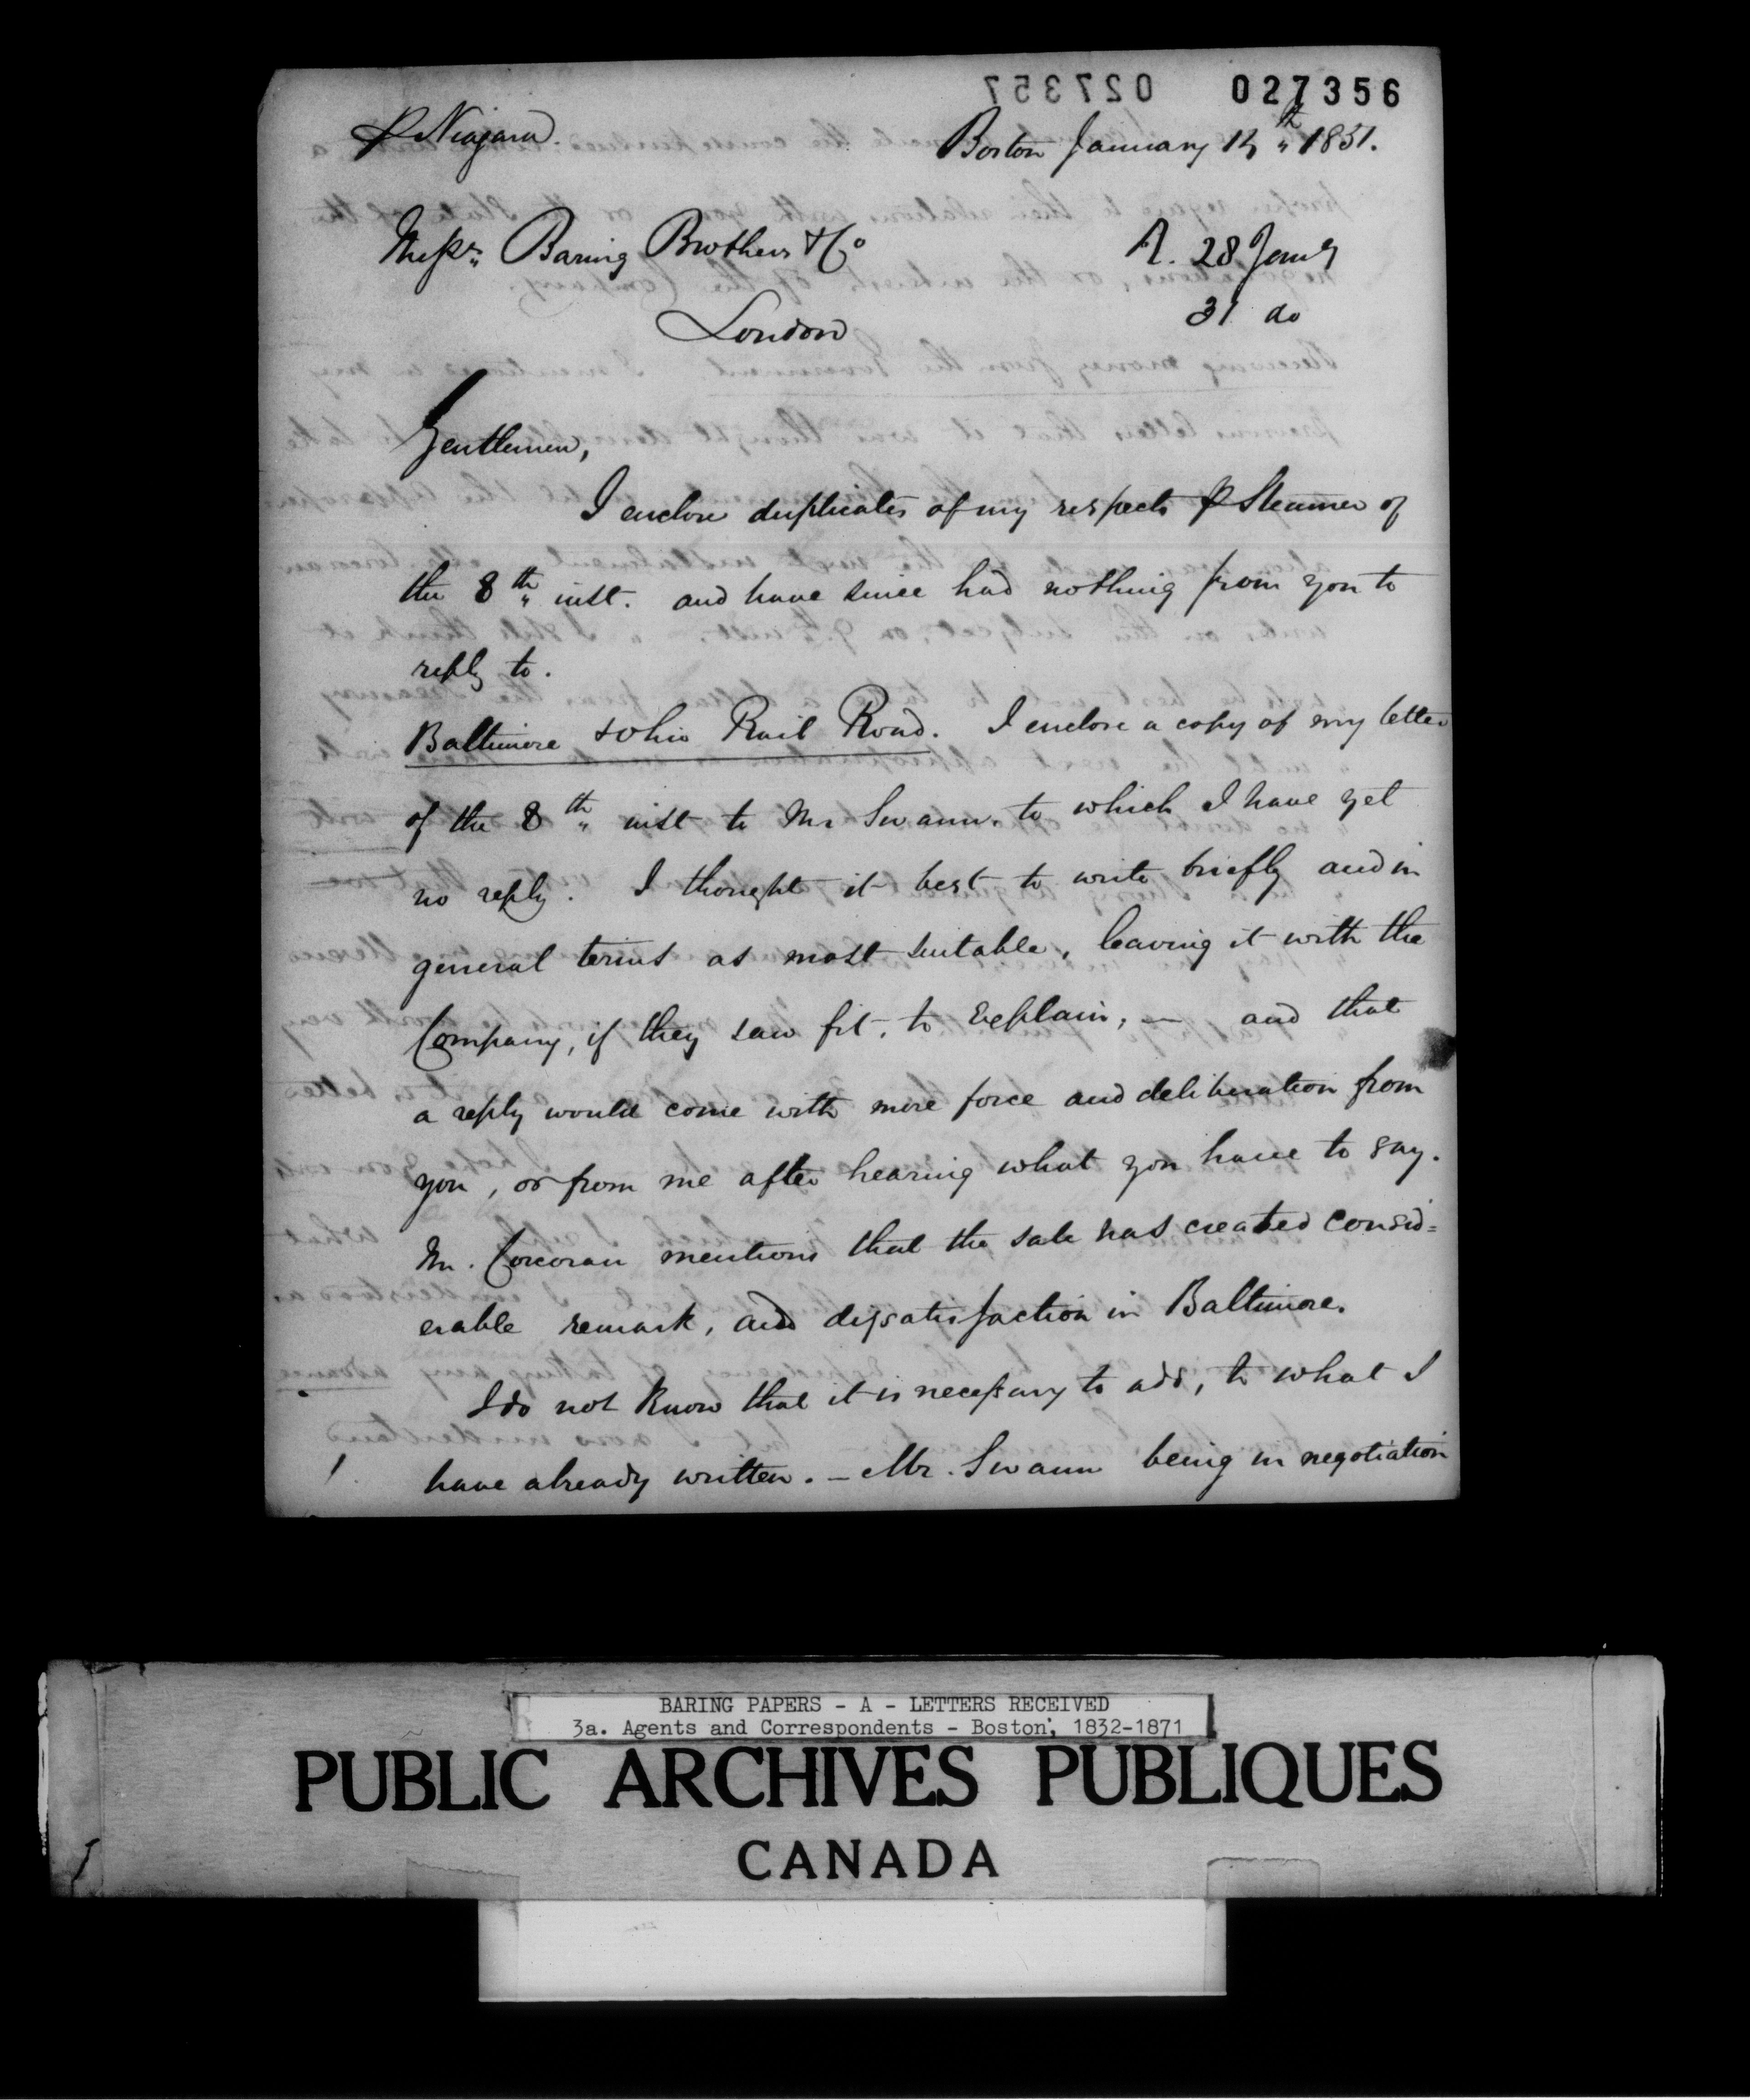 027356
℔ Niagara.
Boston January 14th 1851.
Messrs. Baring Brothers & Co
A. 28 Jany
31 do
London
Gentlemen,
I enclose duplicates of my respects ℔ Steamer of
the 8th inst. and have since had nothing from you to
reply to.
Baltimore & Ohio Rail Road. I enclose a copy of my letter
of the 8th inst to Mr Swann, to which I have yet
no reply. I thought it best to write briefly and in
general terms as most suitable, leaving it with the
Company, if they saw fit, to explain, — and that
a reply would come with more force and deliberation from
you, or from me after hearing what you have to say.
Mr. Corcoran mentions that the sale has created consid=
erable remark, and dissatisfaction in Baltimore.
I do not know that it is necessary to add, to what I
have already written. — Mr. Swann being in negotiation
BARING PAPERS - A - LETTERS RECEIVED
3a. Agents and Correspondents - Boston, 1832-1871
PUBLIC ARCHIVES PUBLIQUES
CANADA